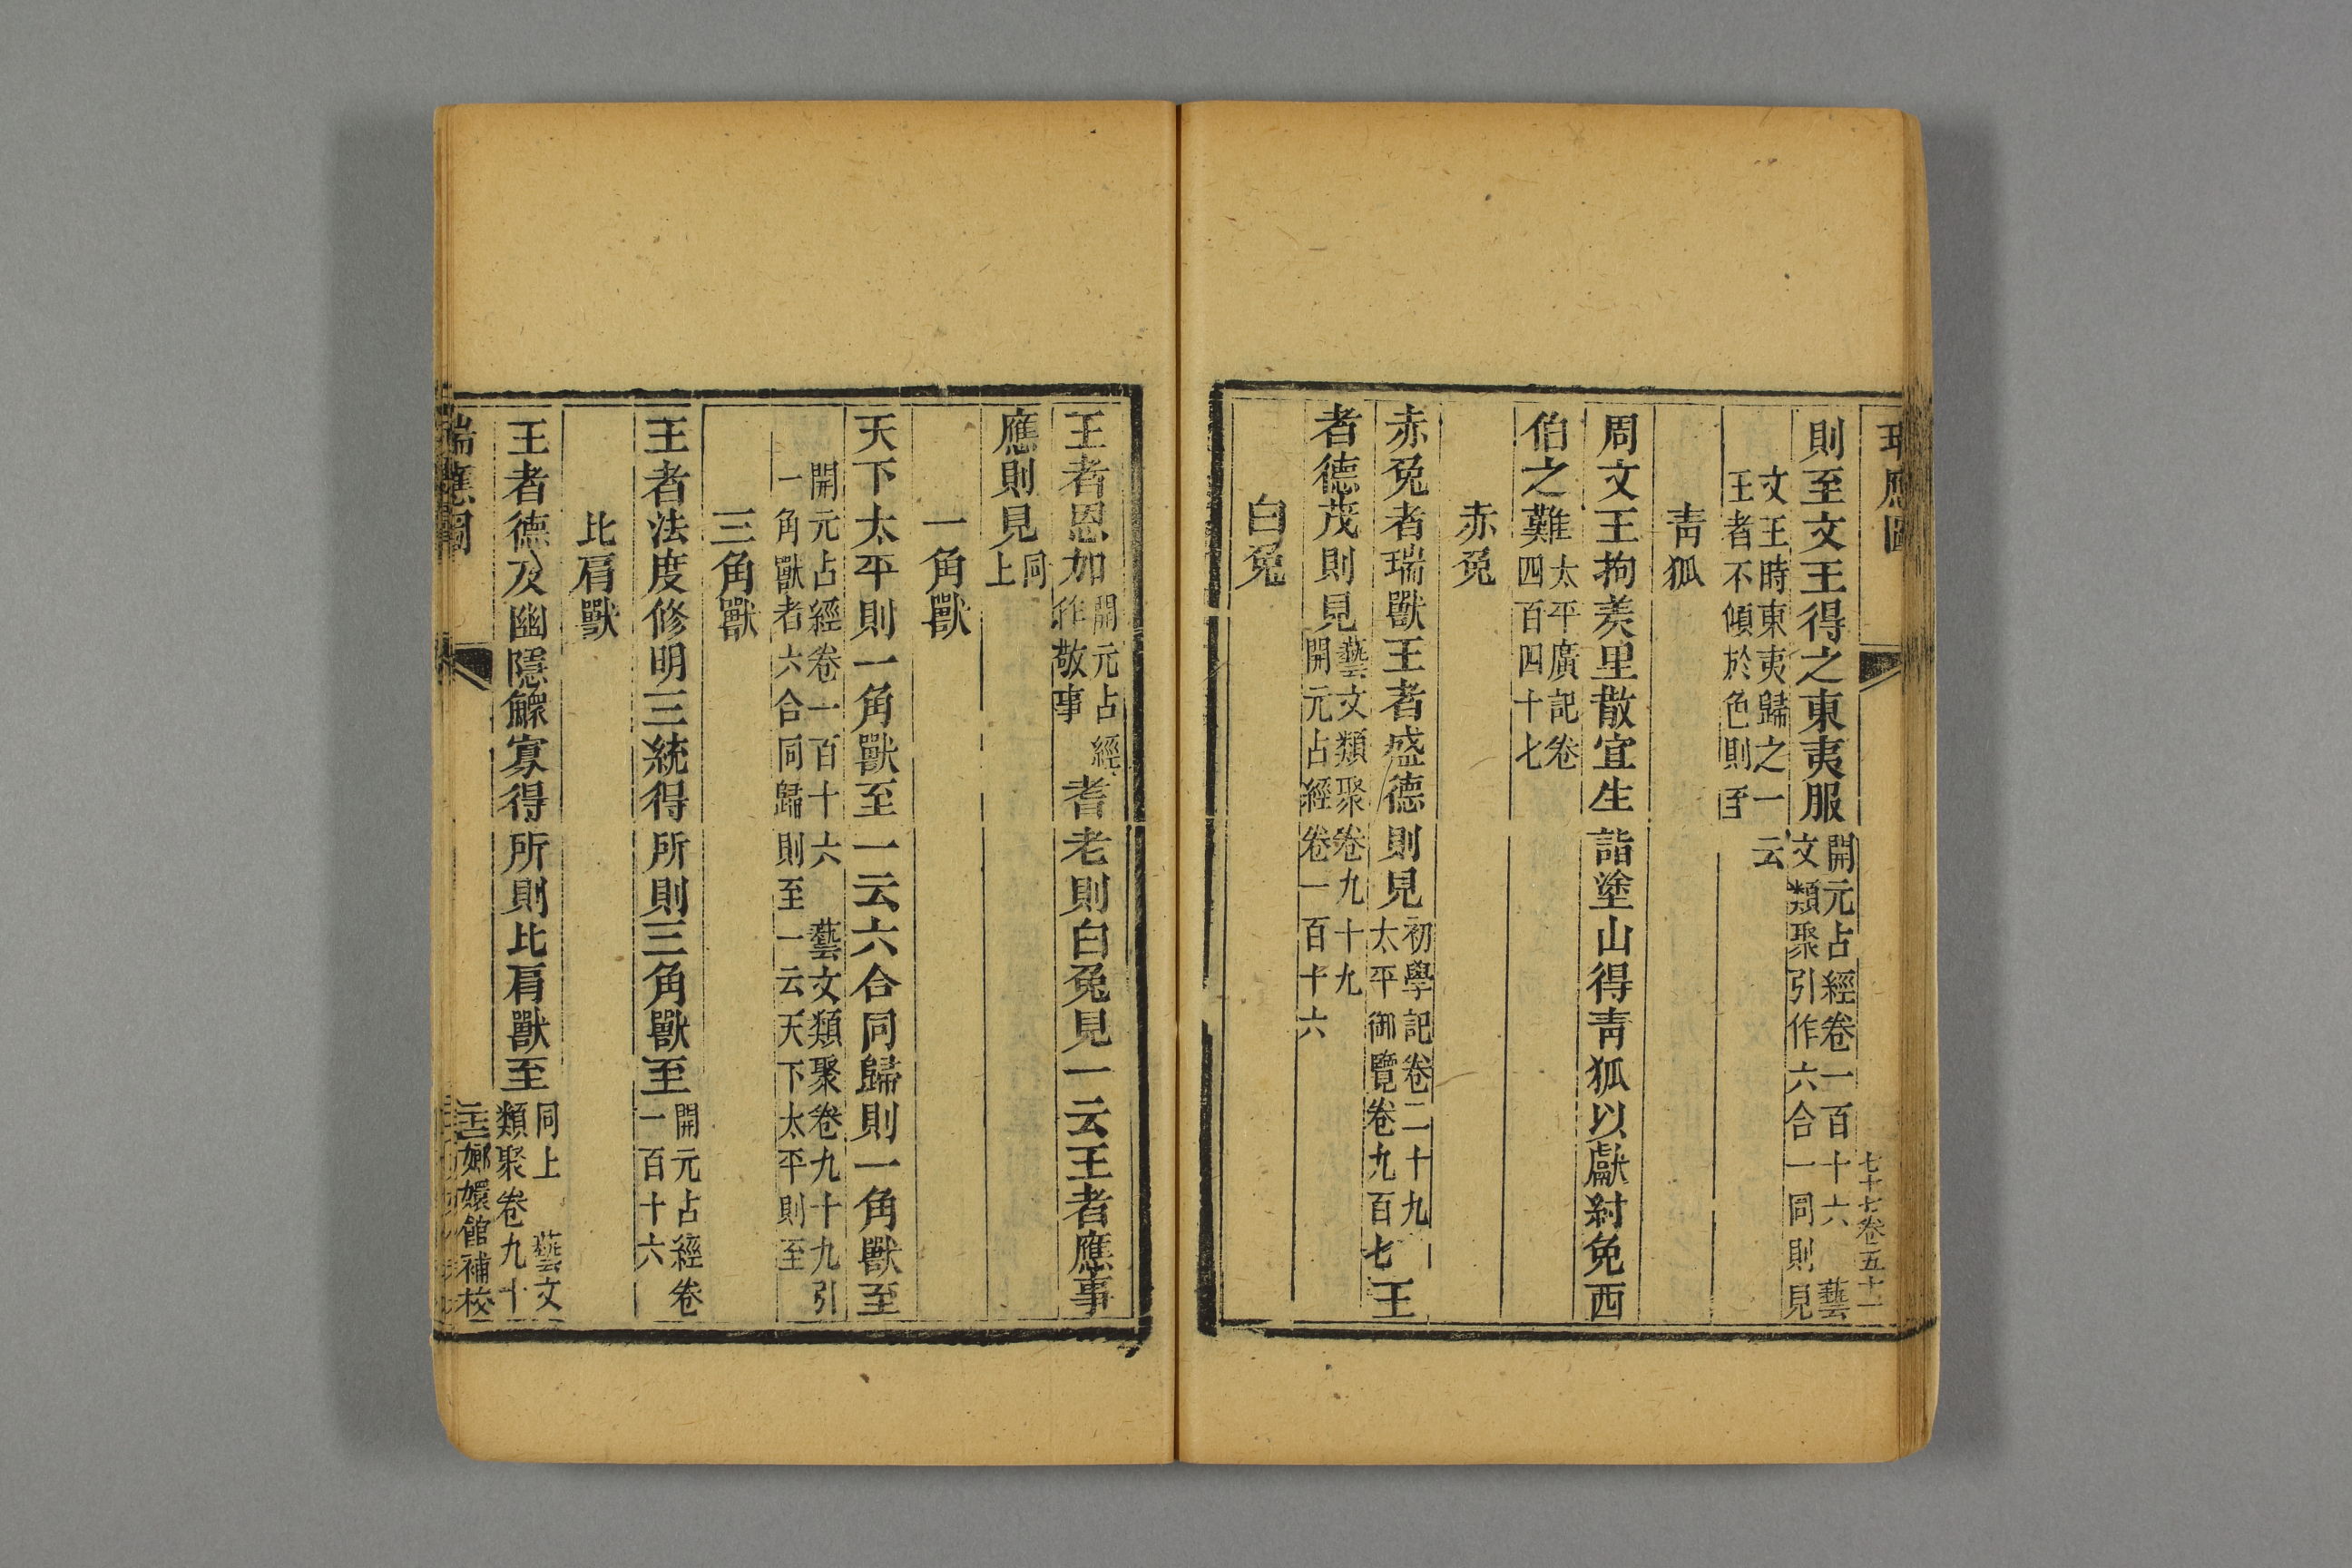 則至文王得之東夷服開元占經卷一百十六 藝
文類聚引作六合一同則見
文王時東夷歸之一云
王者不傾於色則至
青狐
周文王拘羑里散宜生詣塗山得青狐以獻紂免西
伯之難太平廣記卷
四百四十七
赤兔
赤兔者瑞獸王者盛德則見初學記卷二十九
太平御覽卷九百七王
者德茂則見藝文類聚卷九十九
開元占經卷一百十六
白兔
王者恩加開元占經
作敬事耆老則白兔見一云王者應事
應則見同
上
一角獸
天下太平則一角獸至一云六合同歸則一角獸至
開元占經卷一百十六 藝文類聚卷九十九引
一角獸者六合同歸則至一云天下太平則至
三角獸
王者法度修明三統得所則三角獸至開元占經卷
一百十六
比肩獸
王者德及幽隱鰥寡得所則比肩獸至同上 藝文
類聚卷九十
瑞應圖
嫏嬛館補校